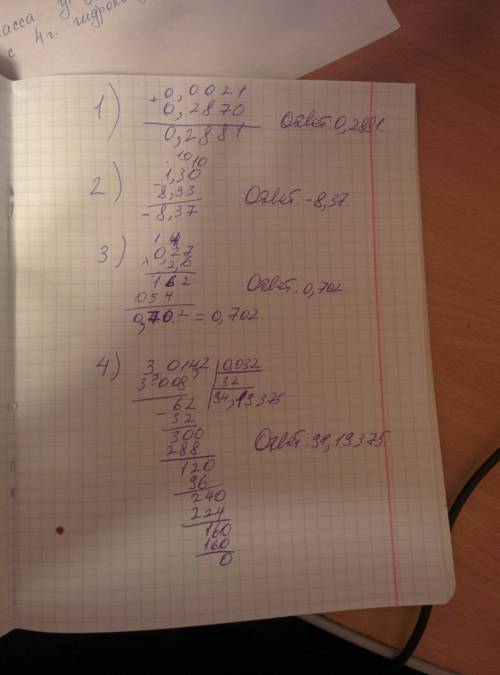 асса
с 4 г. гидрок
1)
+0,0021
0,2870
0,2881
Ответ: 0,2881.
2)
10 10
1,30
8,93
- 8,37
Ответ: -8,37
3)
0,27
× 2,6
162
054
0,702 = 0,702.
Ответ: 0,702
4.)
3,0142 0,032
3 008 32
94,19375
- 62
32
300
288
120
96
240
224
160
160
0
Ответ: 91,19375